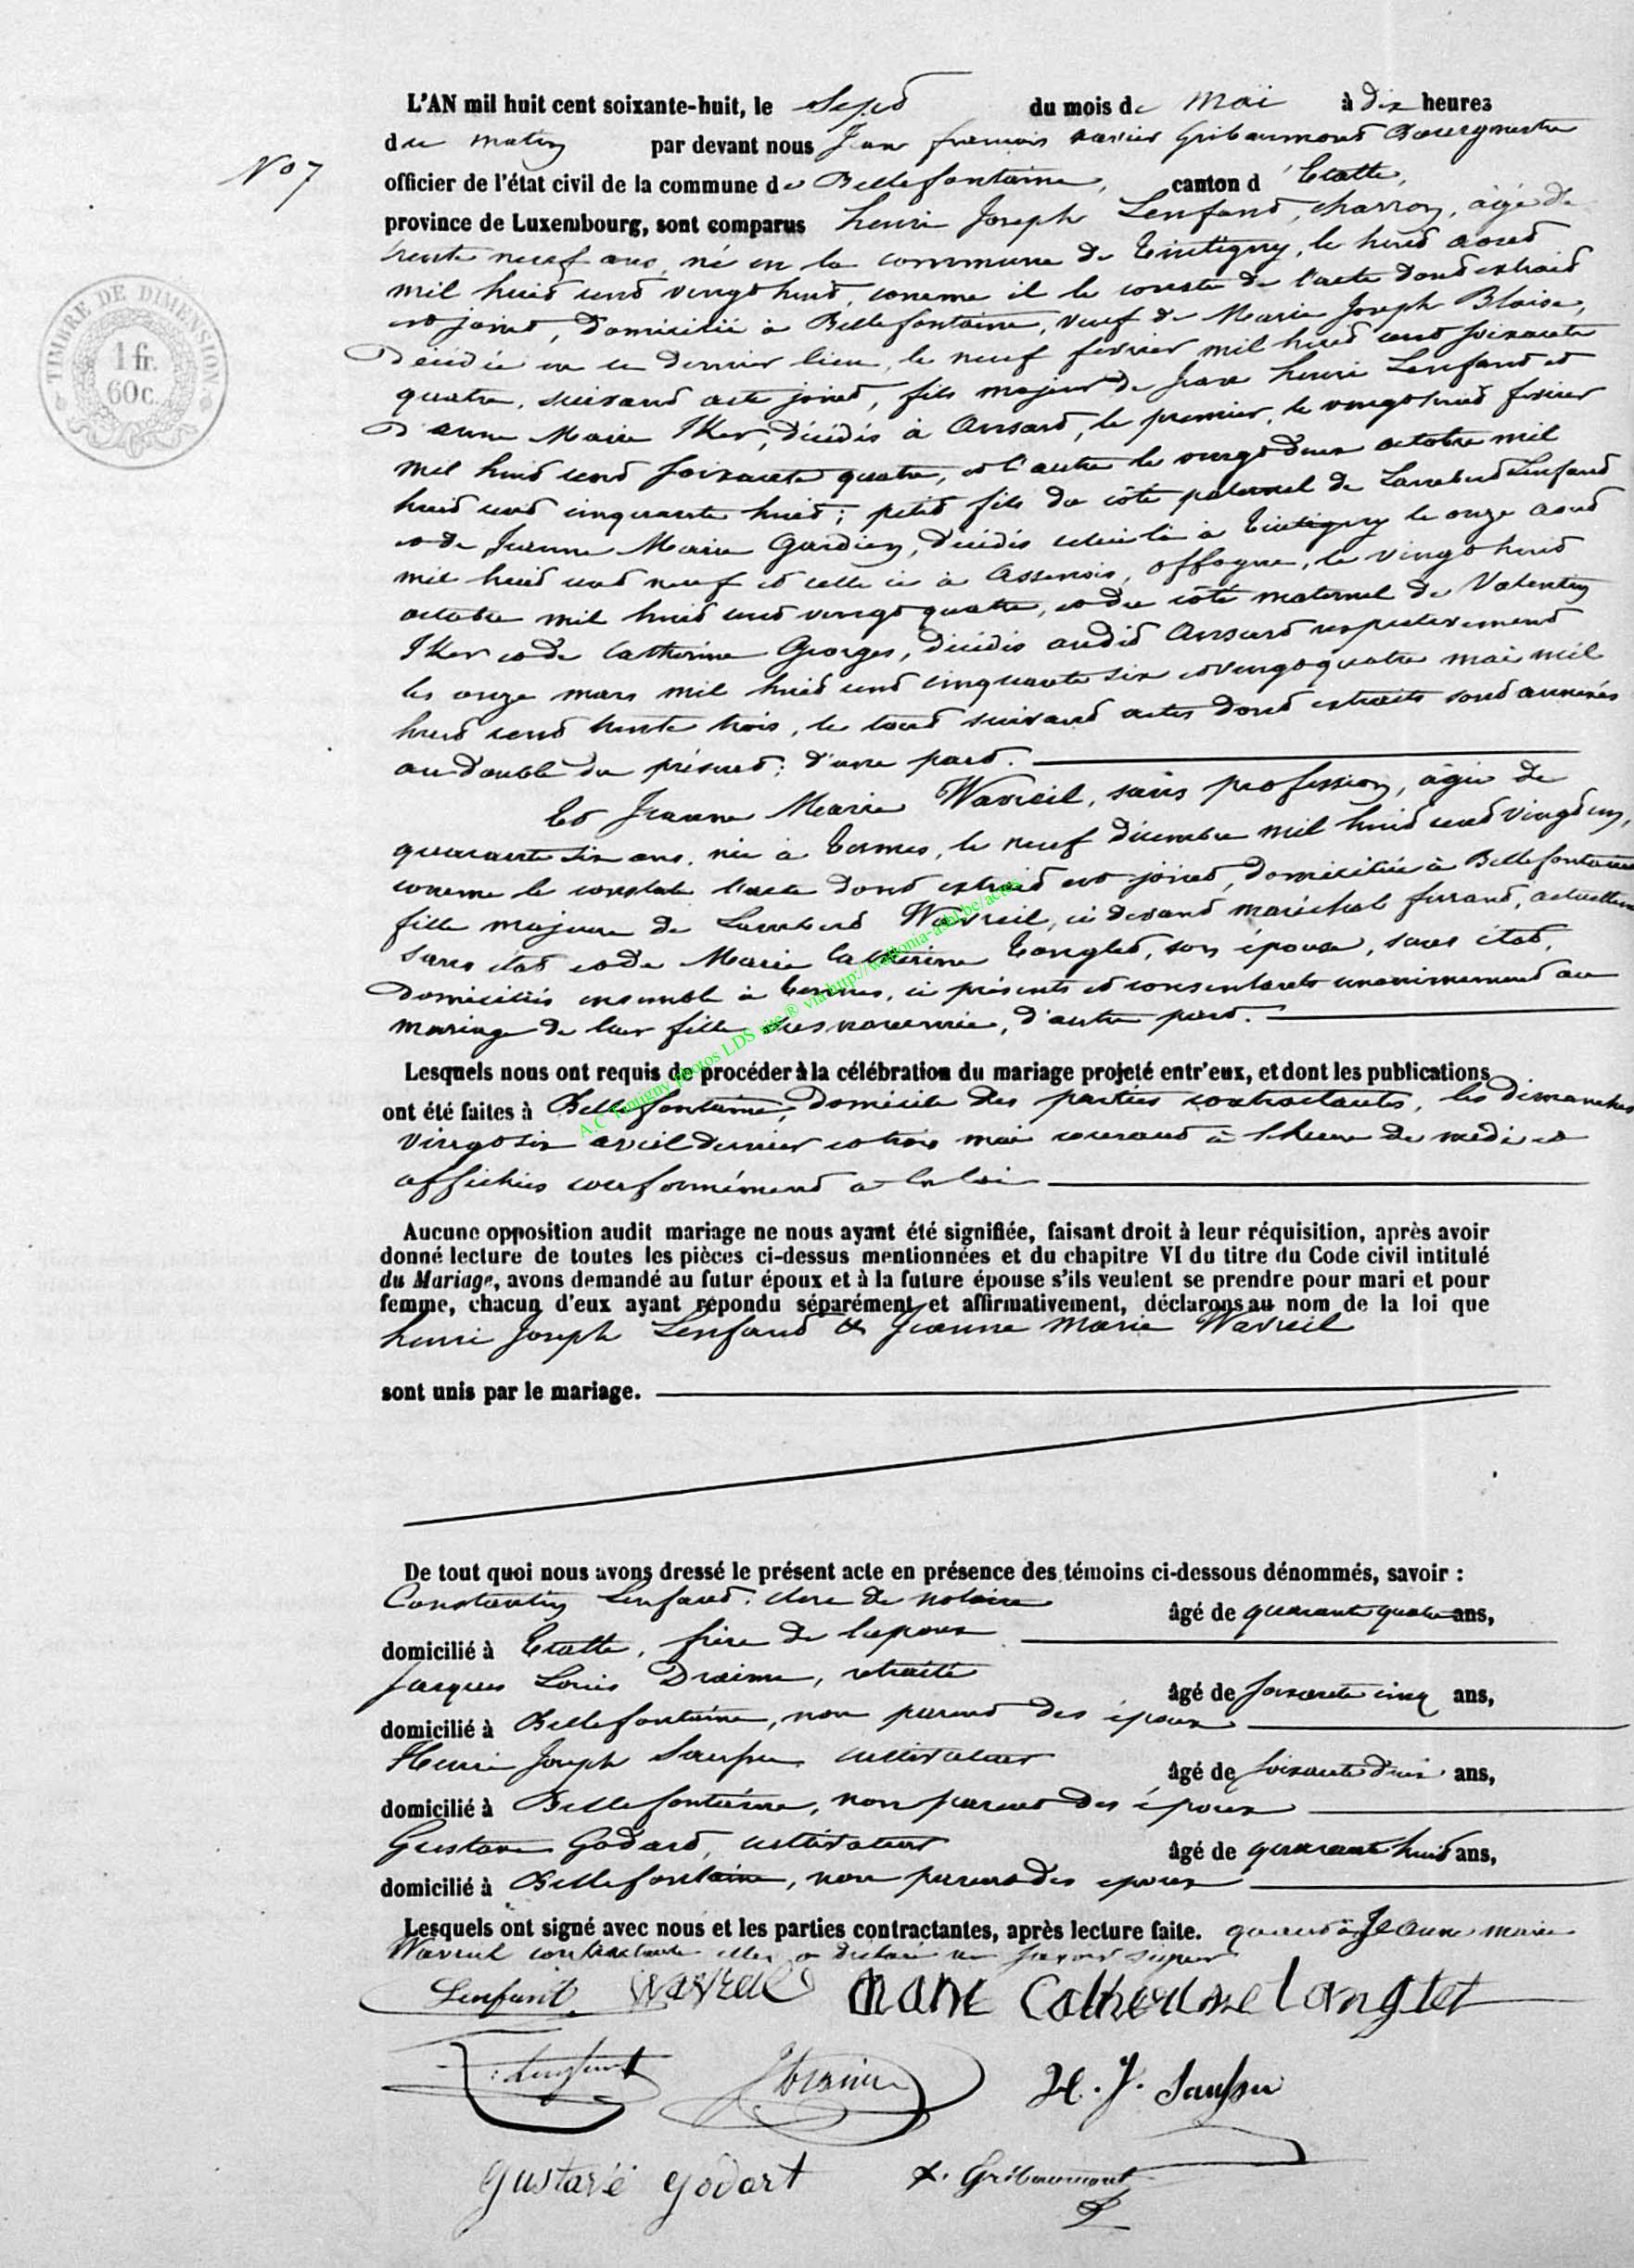 L'AN mil huit cent soixante-huit, le sept du mois de mai à dix heures
du matin par devant nous Jean françois xavier Gribaumont Bourgmestre
No 7
officier de l'état civil de la commune de Bellefontaine, canton d'Etalle,
province de Luxembourg, sont comparus henri Joseph Lenfant, charron, âgé de
trente neuf ans, né en la commune de Tintigny, le huit aout
mil huit cent vingt huit, comme il le conste de l'acte dont extrait
est joint, domicilié à Bellefontaine, veuf de Marie Joseph Blaise,
décédée en ce dernier lieu, le neuf fevrier mil huit cent soixante
quatre, suivant acte joint, fils majeur de Jean henri Lenfant et
d'anne Marie Iker, décédés à Ansart, le premier, le vingt huit fevrier
mil huit cent soixante quatre, et l'autre le vingt deux octobre mil
huit cent cinquante huit; petit fils du côté paternel de Lambert Lenfant
et de Jeanne Marie Gardien, décédés celui là à Tintigny le onze aout
mil huit cent neuf et celle ci à Assenois, offagne, le vingt huit
octobre mil huit cent vingt quatre, et du côté maternel de Valentin
Iker et de Catherine Georges, décédés audit Ansart respectivement
les onze mars mil huit cent cinquante six et vingt quatre mai mil
huit cent trente trois, le tout suivant actes dont extraits sont annexés
au double du présent; d'une part.
Et Jeanne Marie Wavreil, sans profession, âgée de
quarante six ans, née à Termes, le neuf décembre mil huit cent vingt un,
comme le constate l'acte dont extrait est joint, domiciliée à Bellefontaine
fille majeure de Lambert Wavreil, ci devant maréchal ferrant, actuellem
sans état et de Marie Catherine Langlet, son épouse, sans état,
domiciliés ensemble à Termes, ci présents et consentants unanimement au
mariage de leur fille susnommée, d'autre part.
A.C Tintigny photos LDS site ® via http://wallonia-asbl.be/actes
Lesquels nous ont requis de procéder à la célébration du mariage projeté entr'eux, et dont les publications
ont été faites à Bellefontaine, domicile des parties contractantes, les dimanches
vingt six avril dernier et trois mai courant à l'heure de midi et
affichées conformément à la loi
Aucune opposition audit mariage ne nous ayant été signifiée, faisant droit à leur réquisition, après avoir
donné lecture de toutes les pièces ci-dessus mentionnées et du chapitre VI du titre du Code civil intitulé
du Mariage, avons demandé au futur époux et à la future épouse s'ils veulent se prendre pour mari et pour
femme, chacun d'eux ayant répondu séparément et affirmativement, déclarons au nom de la loi que
henri Joseph Lenfant & Jeanne Marie Wavreil
sont unis par le mariage.
TIMBRE DE DIMENSION
1 fr.
60 c.
De tout quoi nous avons dressé le présent acte en présence des témoins ci-dessous dénommés, savoir :
Constantin Lenfant, clerc de notaire âgé de quarante quatre ans,
domicilié à Etalle, frère de l'époux
Jacques Louis Draime, retraité âgé de soixante cinq ans,
domicilié à Bellefontaine, non parent des époux
Henri Joseph Saupu cultivateur âgé de soixante deux ans,
domicilié à Bellefontaine, non parent des époux
Gustave Godard, cultivateur âgé de quarante huit ans,
domicilié à Bellefontaine, non parent des époux
Lesquels ont signé avec nous et les parties contractantes, après lecture faite. quant à Jeanne marie
Wavreil contractante elle a déclaré ne savoir signer
Lenfant. Wavreil Marie Catherine Langlet
Lenfant Draime H. J. Saupu
Gustave Godart X. Gribaumont